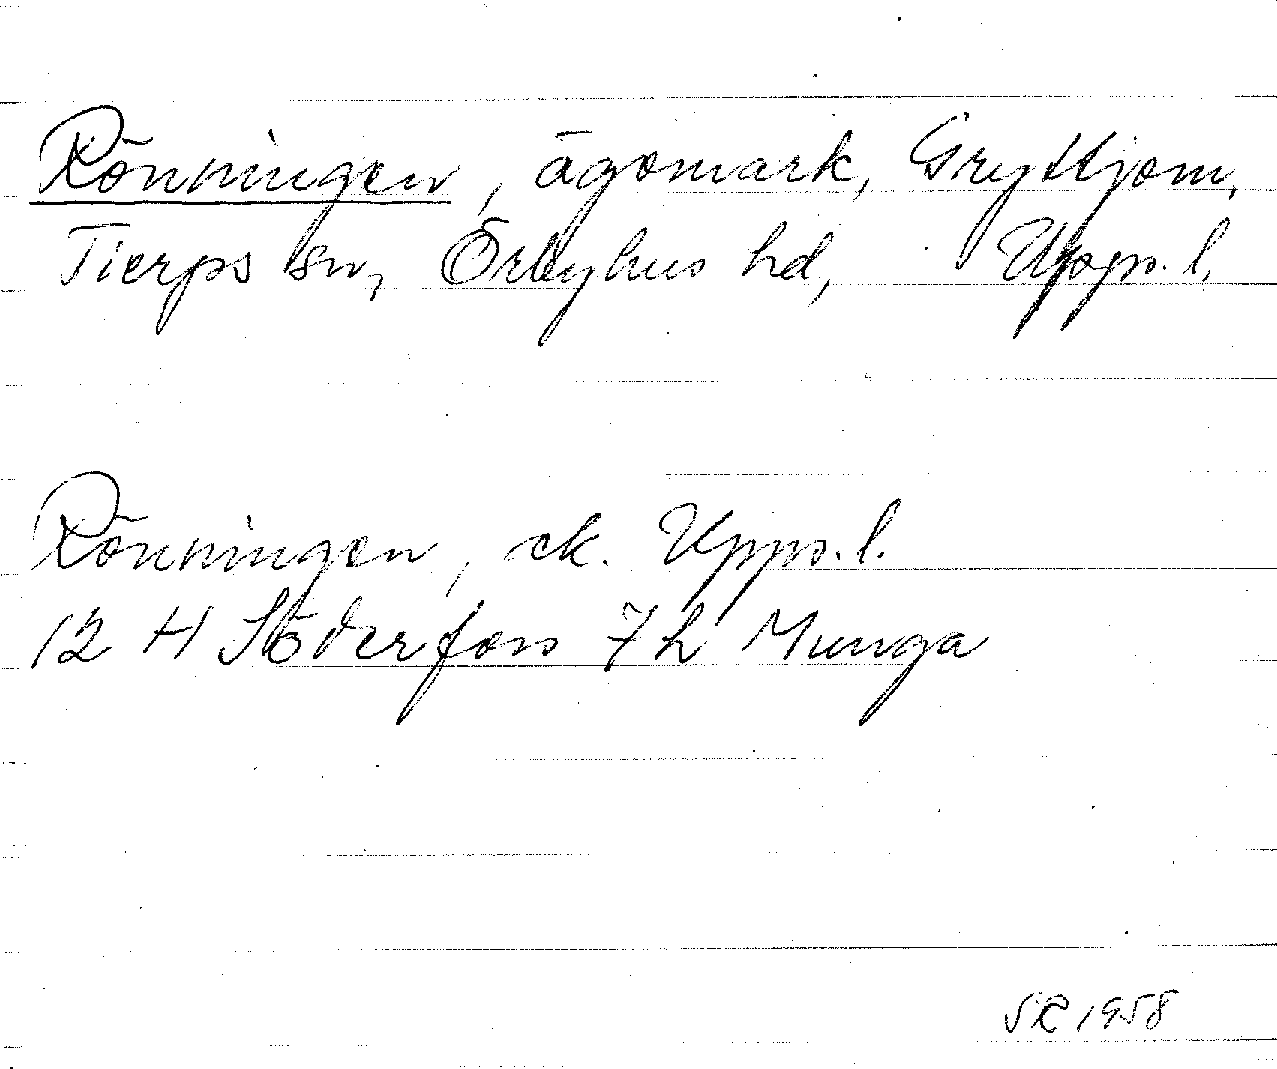 Rönningen, ägomark, Gryttjom,
Tierps sn, Örbyhus hd, Upps. l.
Rönningen, ek. Upps. l.
12 H Söderfors 7 h Munga
SR 1958